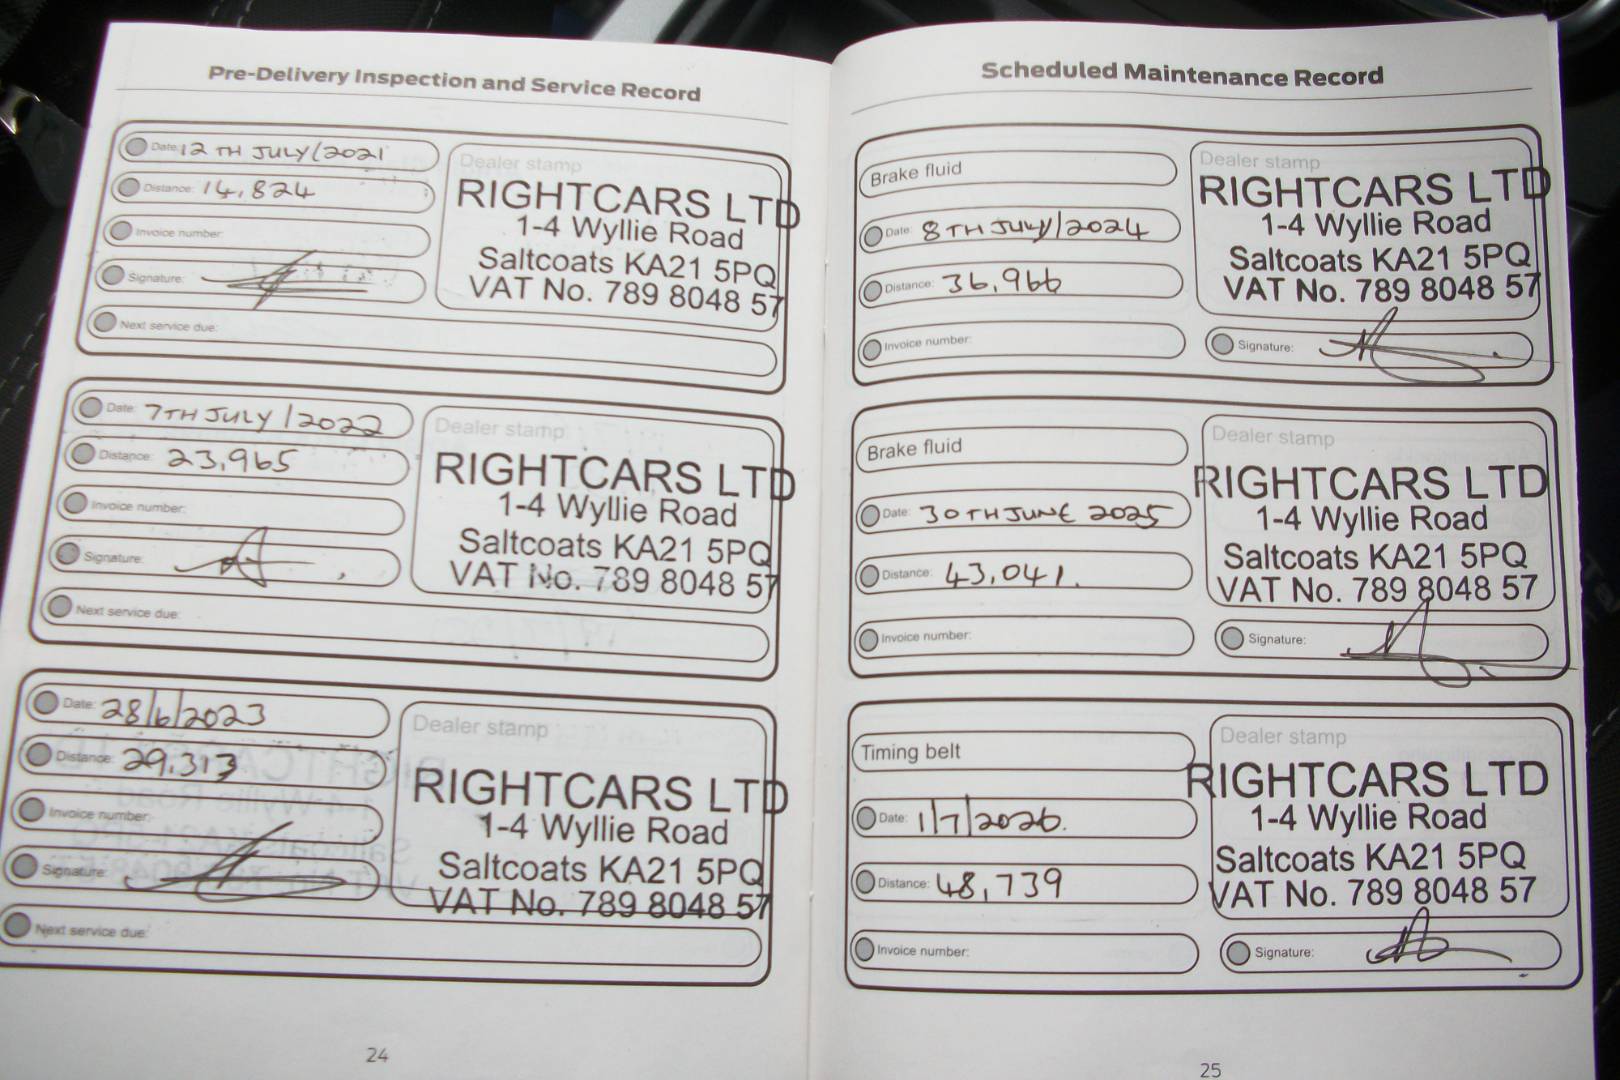 Pre-Delivery Inspection and Service Record
Date: 12TH JULY/2021
Distance: 14,824
Invoice number:
Signature:
Next service due:
Dealer stamp
RIGHTCARS LTD
1-4 Wyllie Road
Saltcoats KA21 5PQ
VAT No. 789 8048 57
Date: 7TH JULY/2022
Distance: 23,965
Invoice number:
Signature:
Next service due:
Dealer stamp
RIGHTCARS LTD
1-4 Wyllie Road
Saltcoats KA21 5PQ
VAT No. 789 8048 57
Date: 28/6/2023
Distance: 29,313
Invoice number:
Signature:
Next service due:
Dealer stamp
RIGHTCARS LTD
1-4 Wyllie Road
Saltcoats KA21 5PQ
VAT No. 789 8048 57
24
Scheduled Maintenance Record
Brake fluid
Date: 8TH JULY/2024
Distance: 36,966
Invoice number:
Dealer stamp
RIGHTCARS LTD
1-4 Wyllie Road
Saltcoats KA21 5PQ
VAT No. 789 8048 57
Signature:
Brake fluid
Date: 30TH JUNE 2025
Distance: 43,041.
Invoice number:
Dealer stamp
RIGHTCARS LTD
1-4 Wyllie Road
Saltcoats KA21 5PQ
VAT No. 789 8048 57
Signature:
Timing belt
Date: 1/7/2026.
Distance: 48,739
Invoice number:
Dealer stamp
RIGHTCARS LTD
1-4 Wyllie Road
Saltcoats KA21 5PQ
VAT No. 789 8048 57
Signature:
25